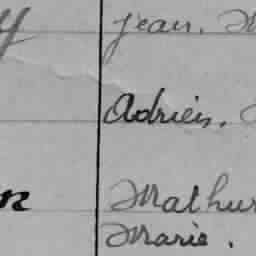 y jean.
Adrien.
n Mathur
Marie.